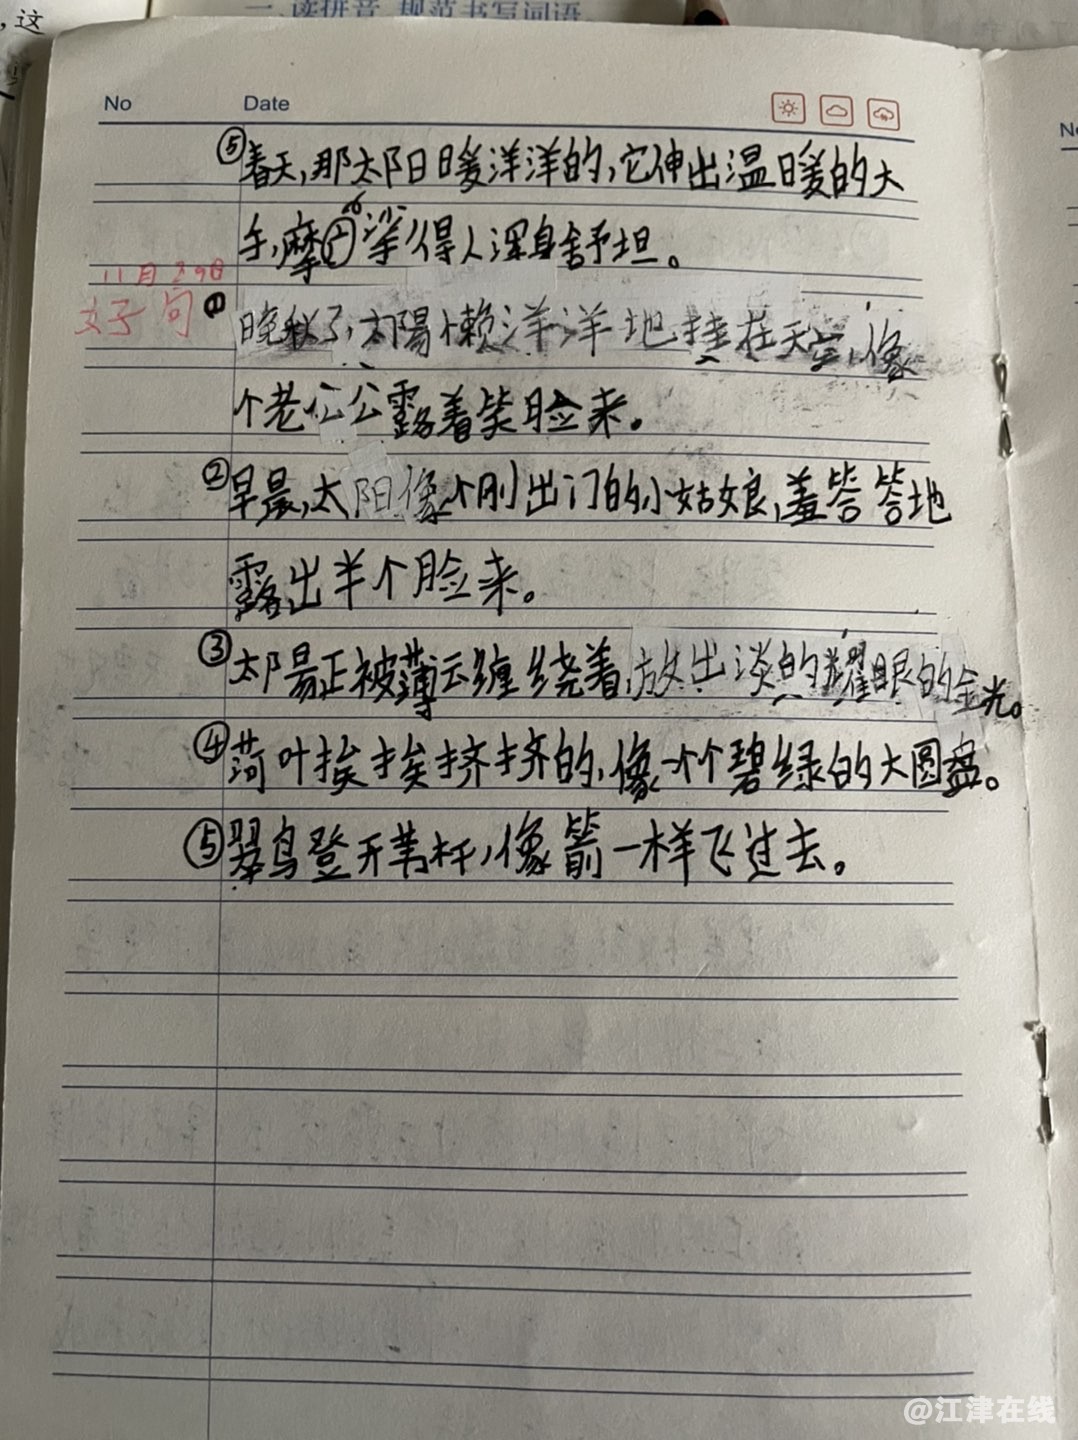 ，这
一、读拼音，规范书写词语。
No Date
⑤春天，那太阳日暖洋洋的，它伸出温暖的大
手，摩挲得人浑身舒坦。
11月29日
好句①晚秋了，太陽懒洋洋地挂在天空，像
个老公公露着笑脸来。
②早晨，太阳像个刚出门的小姑娘，羞答答地
露出半个脸来。
③太陽正被薄云缠绕着，放出淡的耀眼的金光。
④荷叶挨挨挤挤的，像一个个碧绿的大圆盘。
⑤翠鸟登开苇杆，像箭一样飞过去。
@江津在线